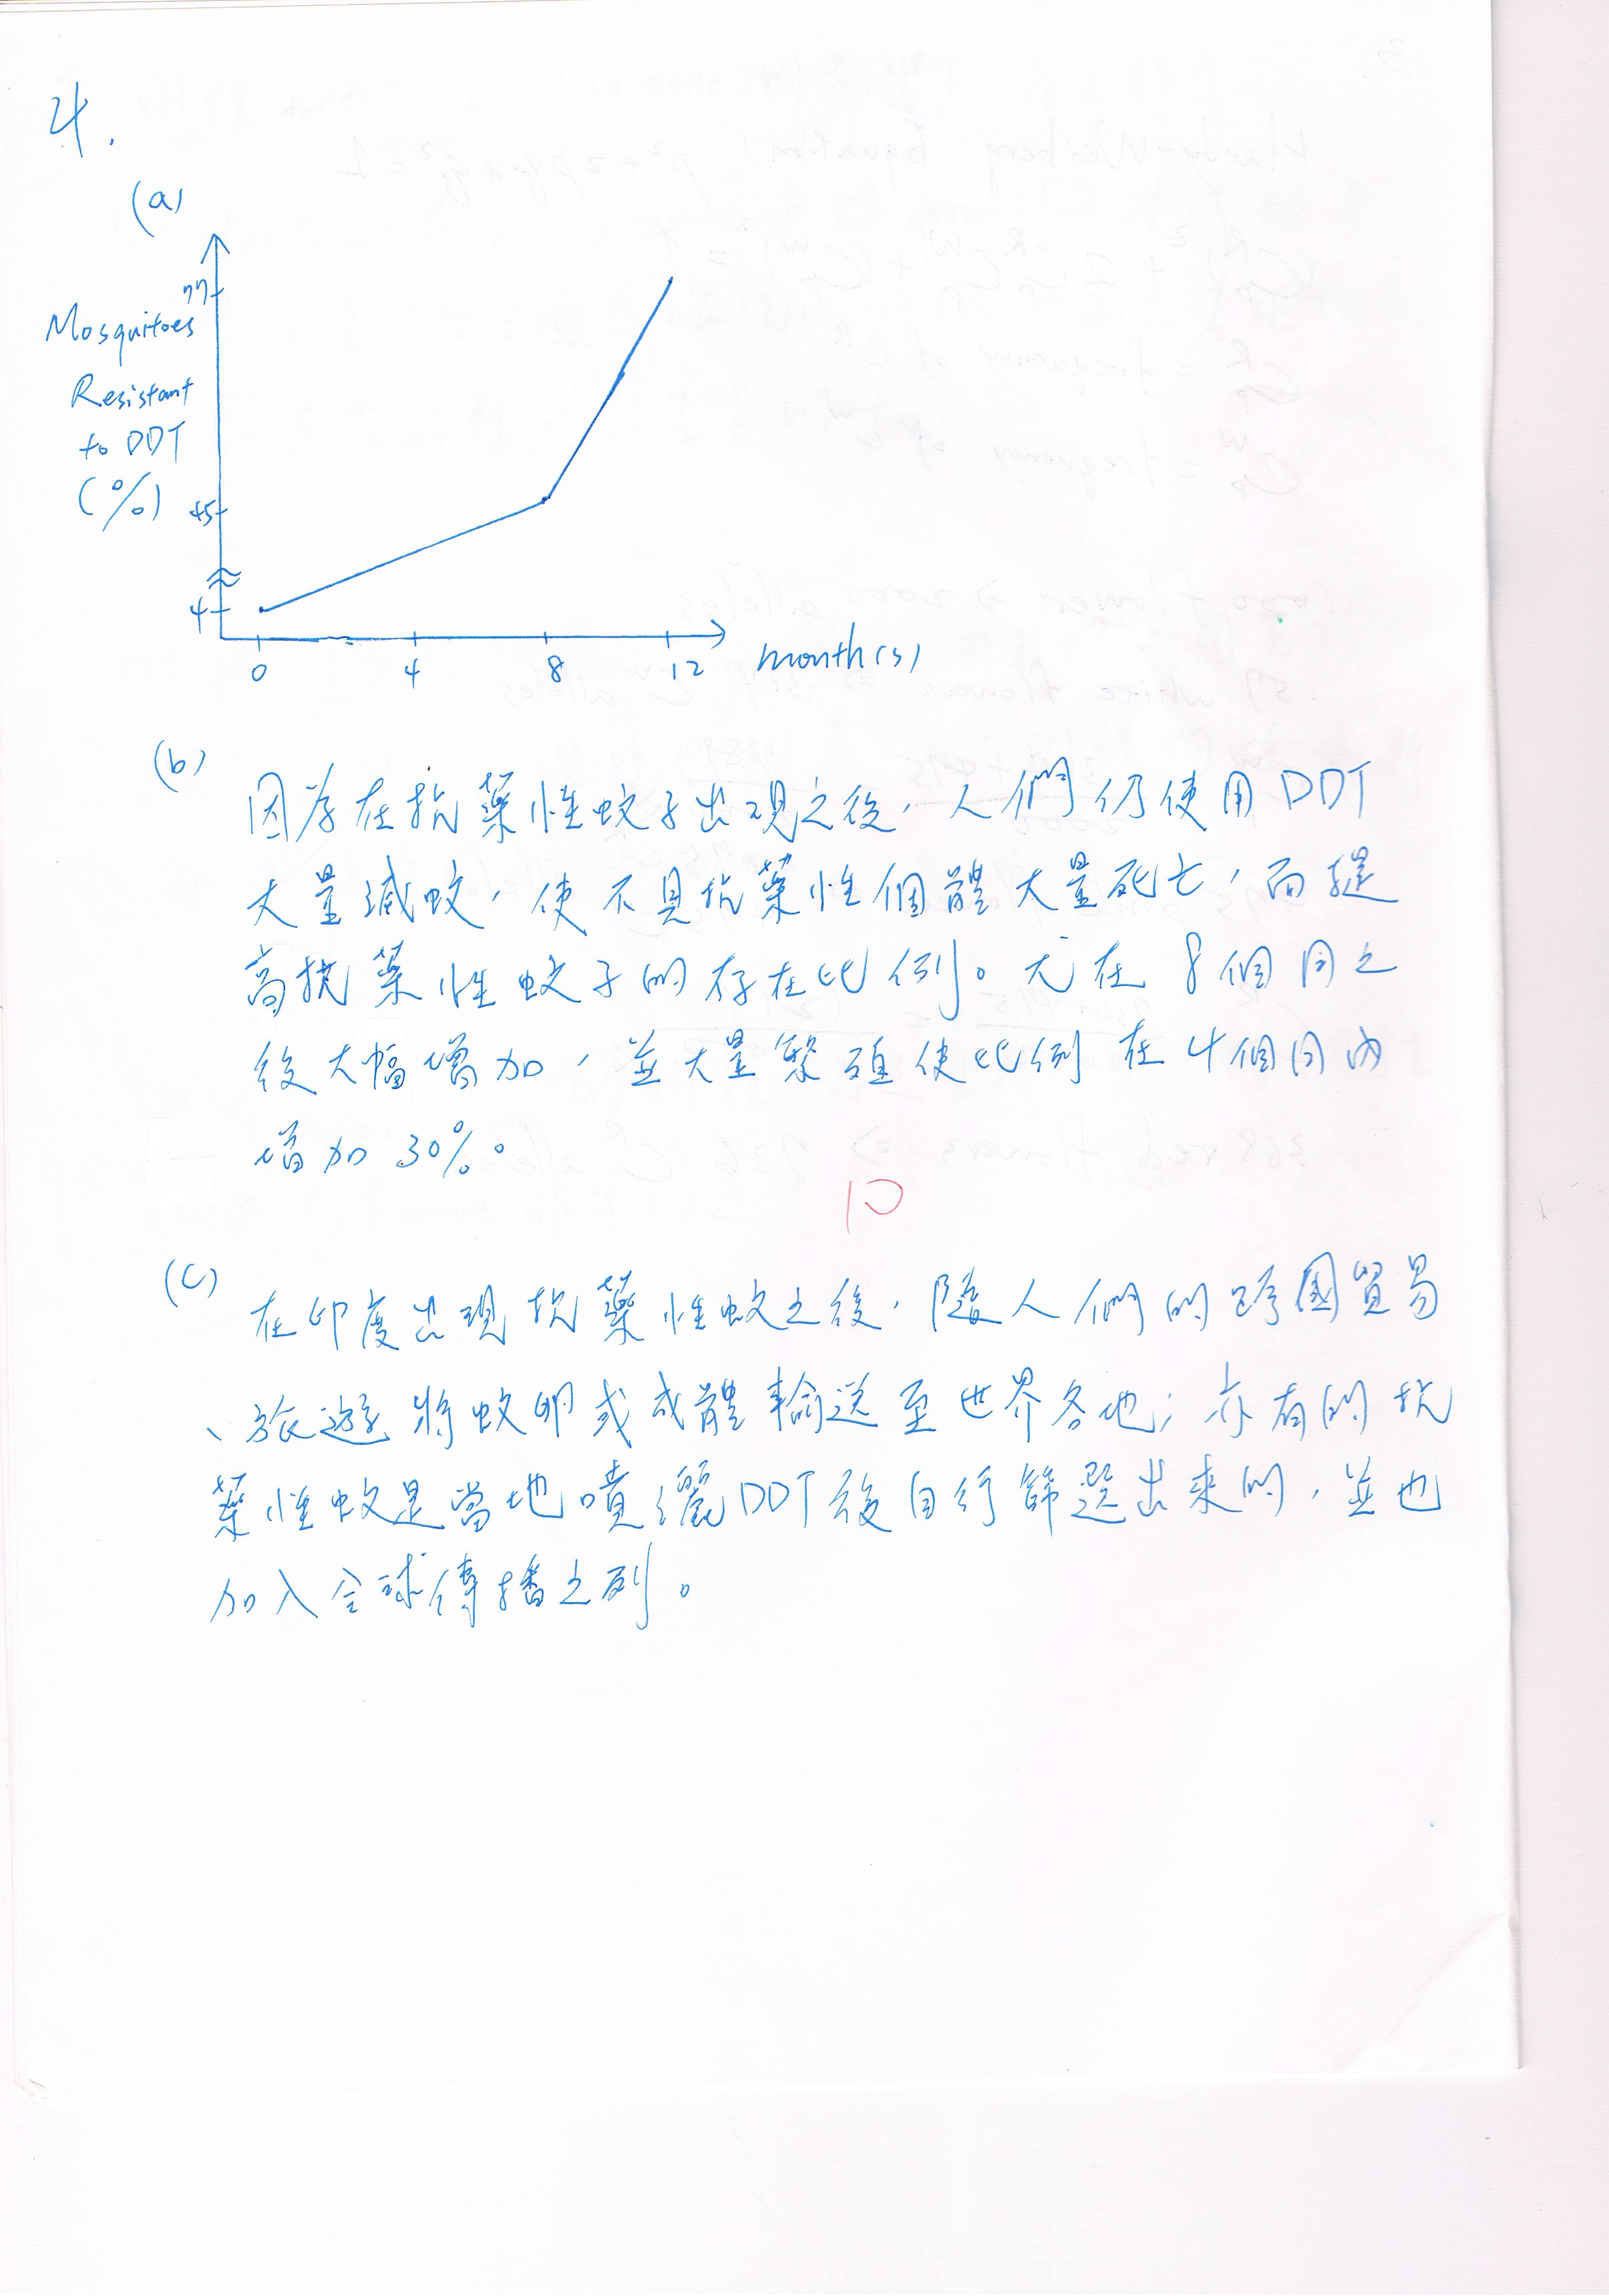 4.
(a)
77
Mosquitoes
Resistant
to DDT
(%)
45
4
0 4 8 12 month(s)
(b)
因為在抗藥性蚊子出現之後，人們仍使用DDT
大量滅蚊，使不具抗藥性個體大量死亡，而提
高抗藥性蚊子的存在比例。尤在8個月之
後大幅增加，並大量繁殖使比例在4個月內
增加30%。
10
(c)
在印度出現抗藥性蚊之後，隨人們的跨國貿易
、旅遊將蚊卵或成體輸送至世界各地；亦有的抗
藥性蚊是當地噴灑DDT後自行篩選出來的，並也
加入全球傳播之列。